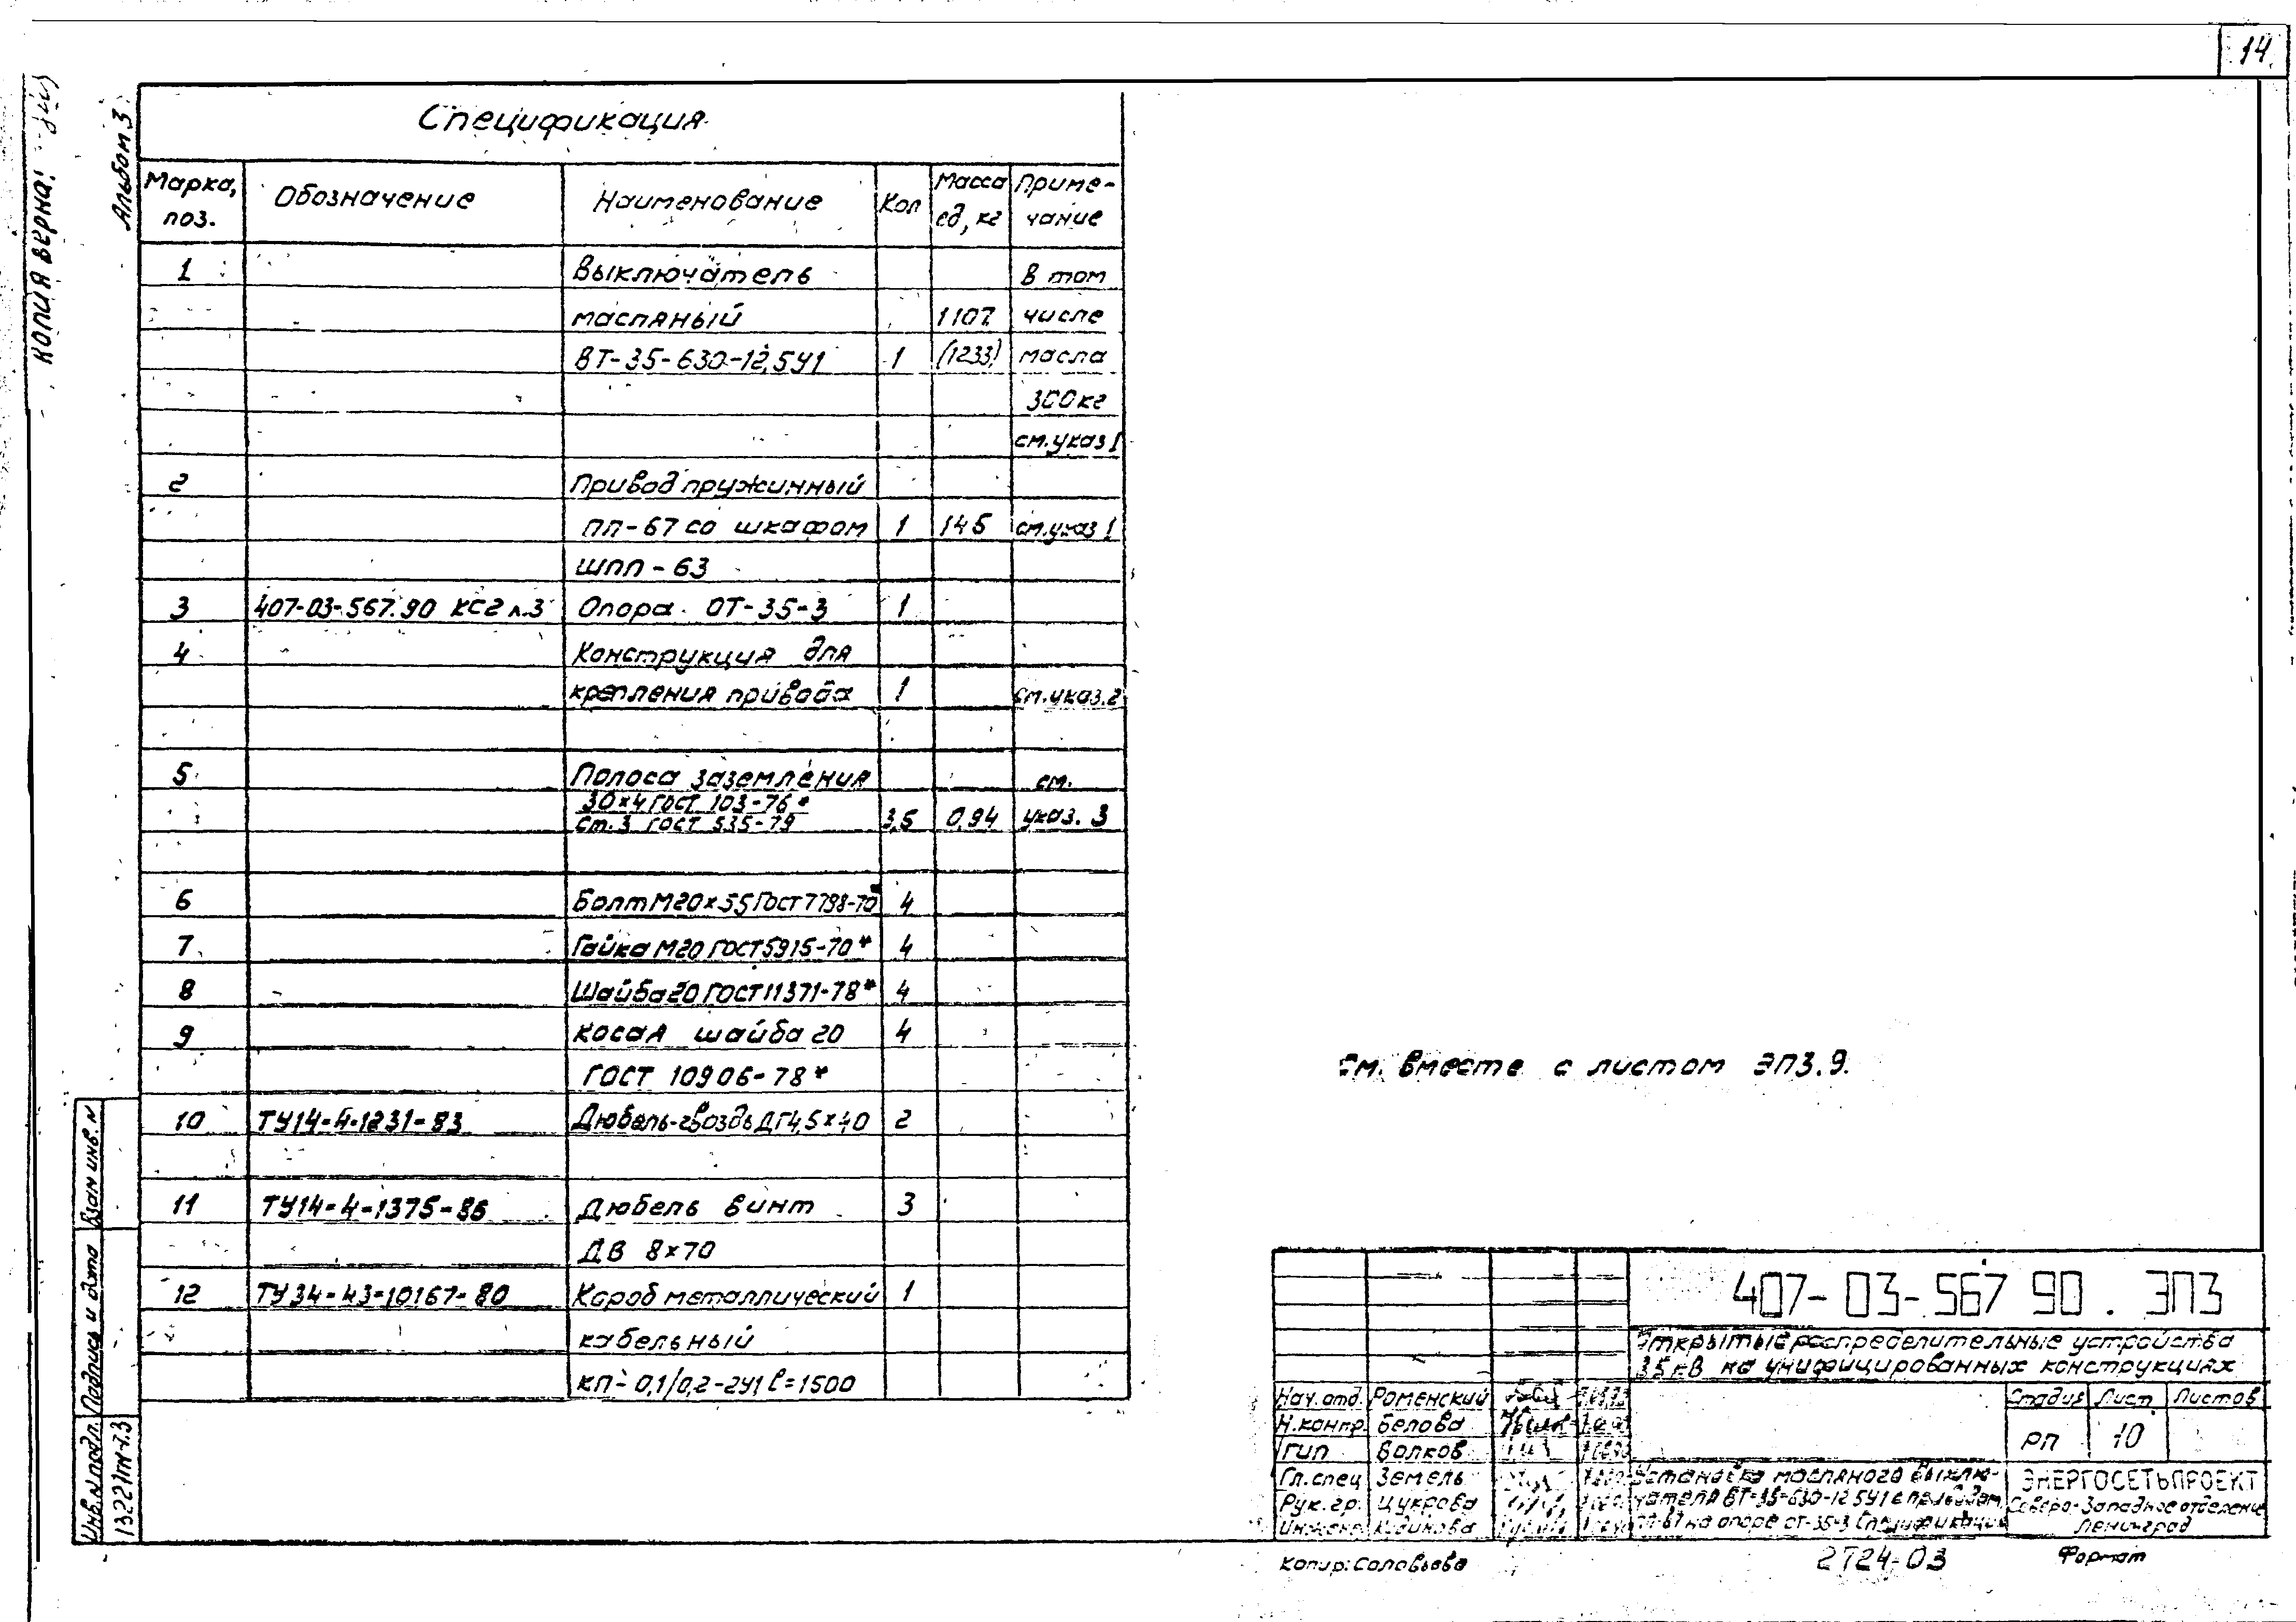 14
КОПИЯ ВЕРНА:
Альбом 3
Спецификация
Марка, поз. Обозначение Наименование Кол Масса ед, кг Приме- чание
1 Выключатель в том
масляный 1107 числе
ВТ-35-630-12,5У1 1 (1233) масла
300кг
см.указ 1
2 Привод пружинный
ПП-67 со шкафом 1 145 см.указ 1
ШПП-63
3 407-03-567.90 КС2 л.3 Опора ОТ-35-3 1
4 Конструкция для
крепления привода 1 см.указ.2
5 Полоса заземления см.
30×4 ГОСТ 103-76*
Ст.3 ГОСТ 535-79 3,5 0,94 указ. 3
6 Болт М20×55 ГОСТ 7798-70* 4
7 Гайка М20 ГОСТ 5915-70* 4
8 Шайба 20 ГОСТ 11371-78* 4
9 Косая шайба 20 4
ГОСТ 10906-78*
10 ТУ14-4-1231-83 Дюбель-гвоздь ДГ4,5×40 2
11 ТУ14-4-1375-86 Дюбель винт 3
ДВ 8×70
12 ТУ34-43-10167-80 Короб металлический 1
кабельный
КП-0,1/0,2-2У1 l=1500
см. вместе с листом ЭП3.9.
Взам инв. N
Подпись и дата
Инв. N подл.
13221тм-т.3
407-03-567 90. ЭП3
Открытые распределительные устройства
35кВ на унифицированных конструкциях
Нач.отд. Роменский
Н.контр. Белова
ГИП Волков
Гл.спец Земель
Рук.гр. Цукрова
Инженер
Стадия Лист Листов
РП 10
Установка масляного выклю-
чателя ВТ-35-630-12 5У1 с приводом
ПП-67 на опоре ОТ-35-3 Спецификация
ЭНЕРГОСЕТЬПРОЕКТ
Северо-Западное отделение
Ленинград
Копир: Соловьева
2724-03
Формат